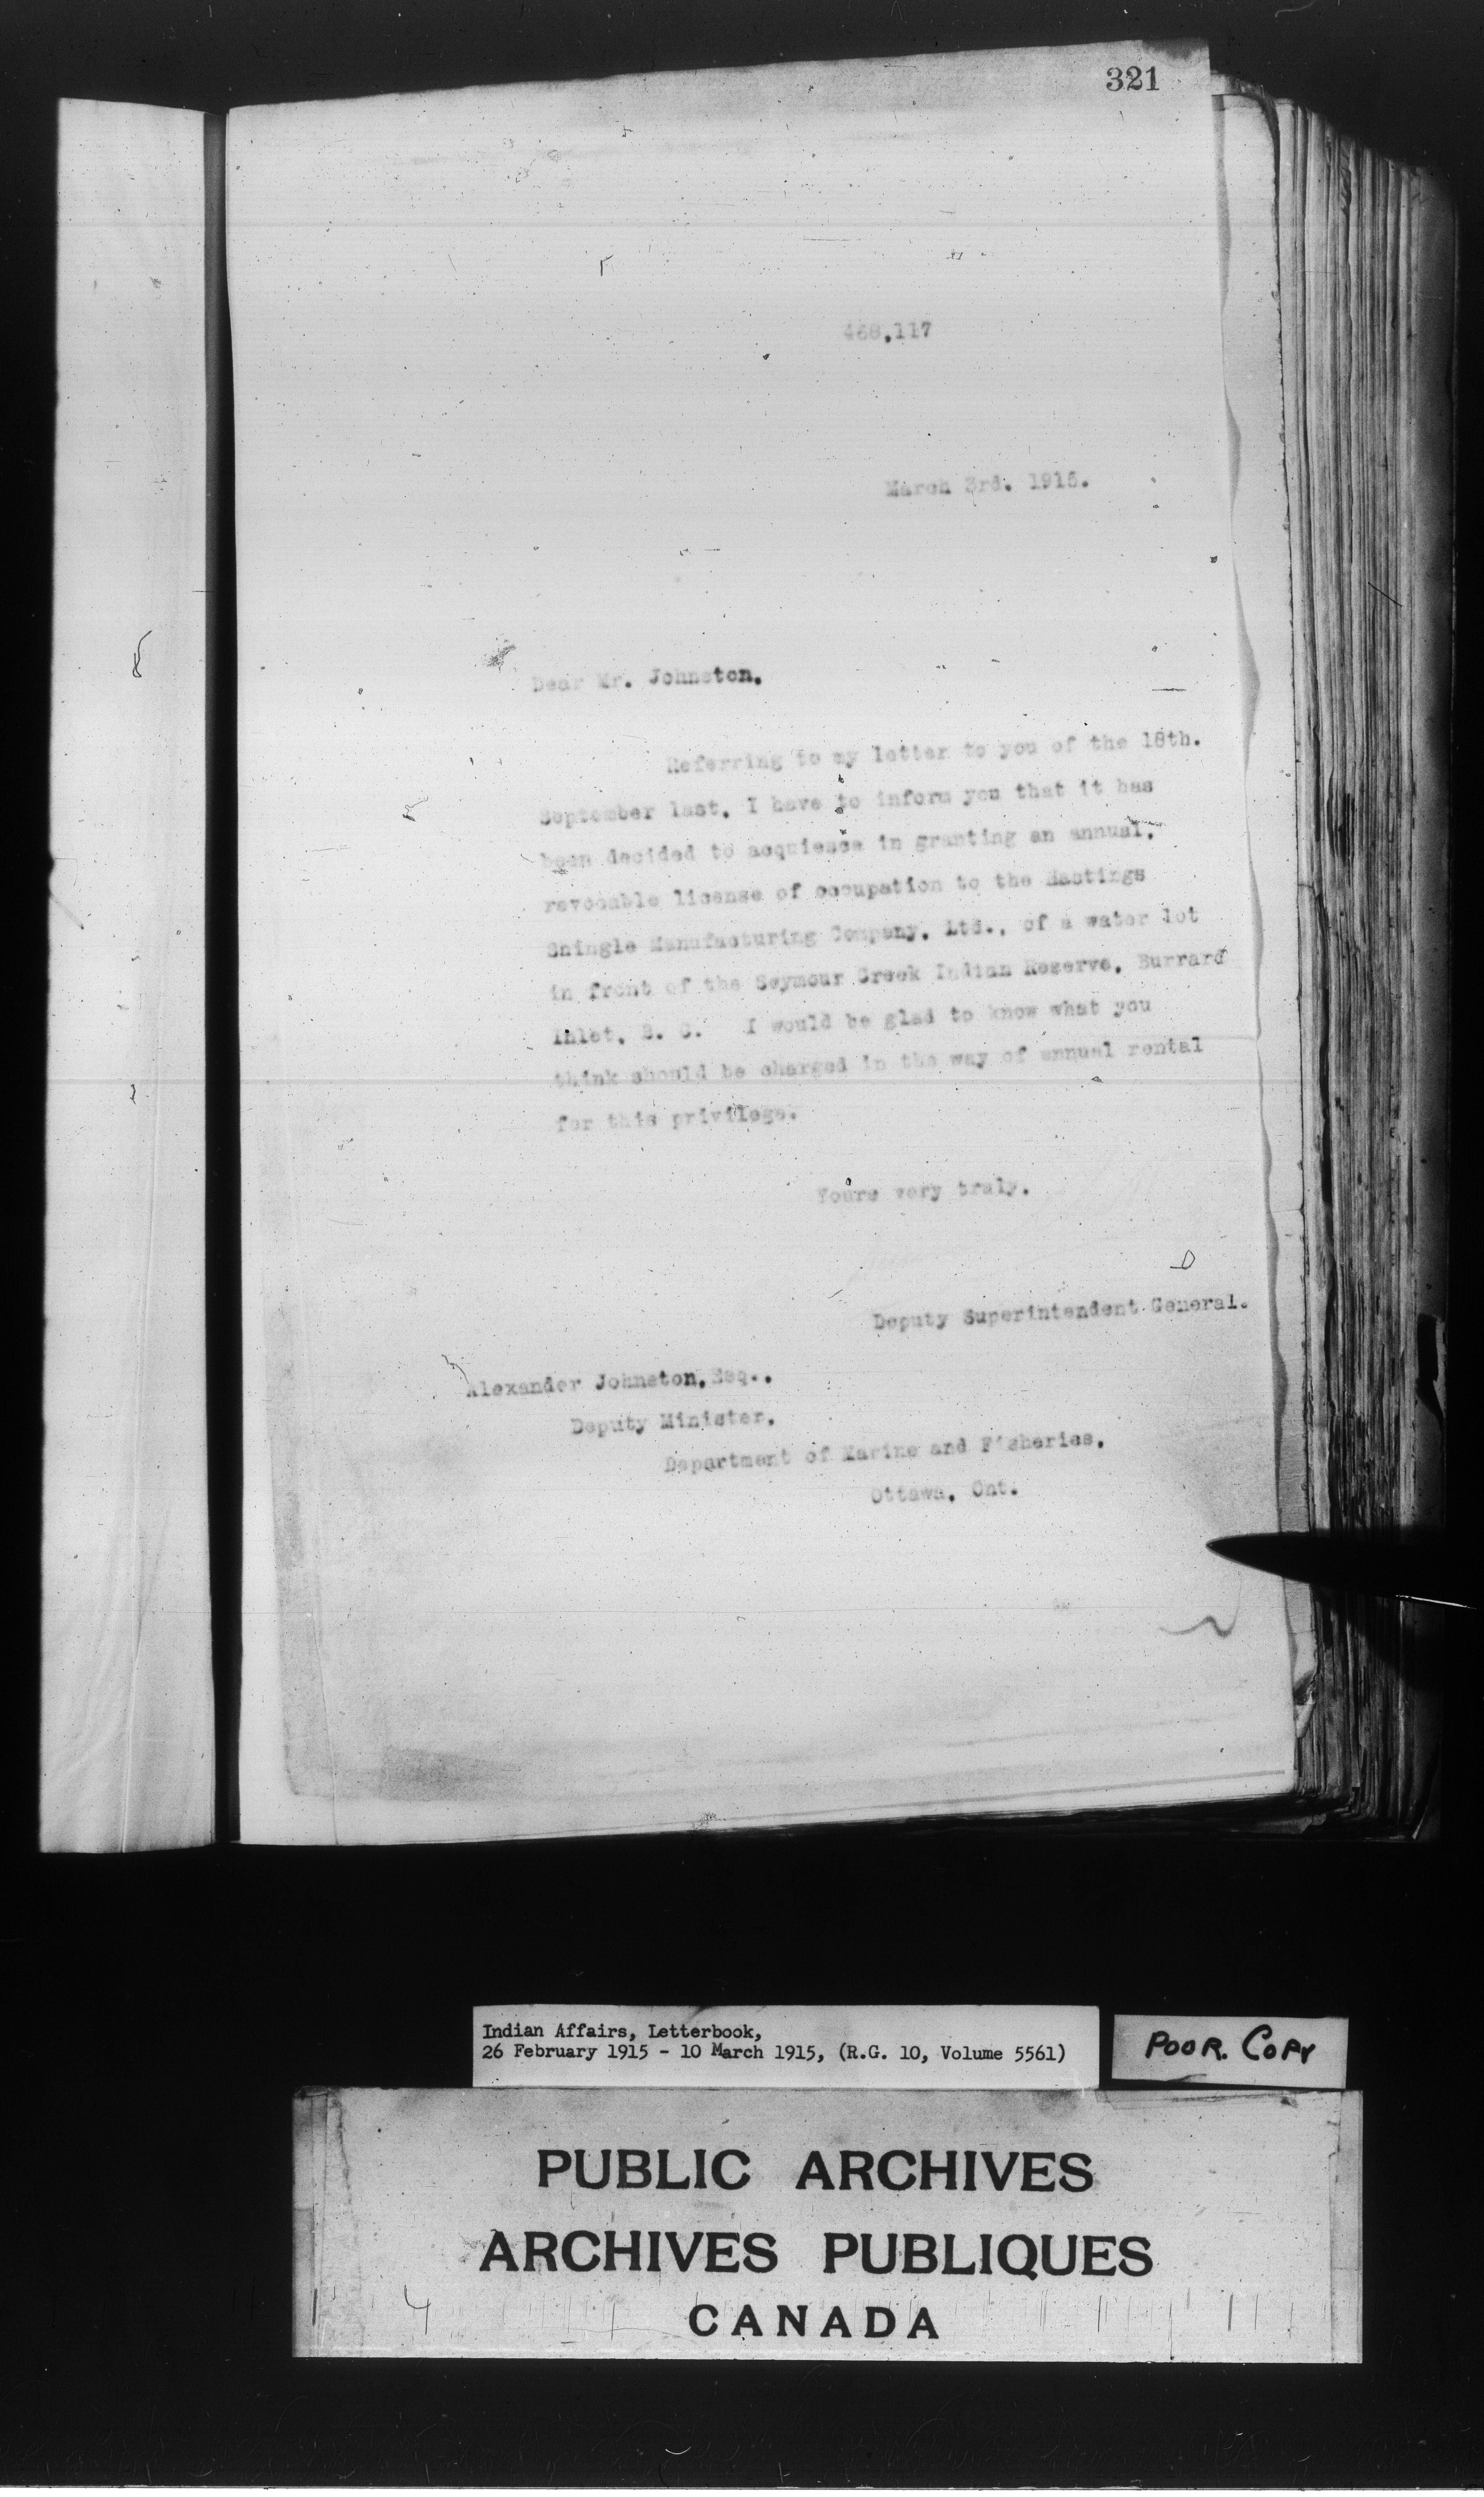 321
468,117
March 3rd. 1915.
Dear Mr. Johnston,
Referring to my letter to you of the 18th.
September last, I have to inform you that it has
been decided to acquiesce in granting an annual,
revocable license of occupation to the Hastings
Shingle Manufacturing Company, Ltd., of a water lot
in front of the Seymour Creek Indian Reserve, Burrard
Inlet, B. C. I would be glad to know what you
think should be charged in the way of annual rental
for this privilege.
Yours very truly,
Deputy Superintendent General.
Alexander Johnston, Esq.,
Deputy Minister,
Department of Marine and Fisheries,
Ottawa, Ont.
Indian Affairs, Letterbook,
26 February 1915 - 10 March 1915, (R.G. 10, Volume 5561)
POOR. COPY
PUBLIC ARCHIVES
ARCHIVES PUBLIQUES
CANADA